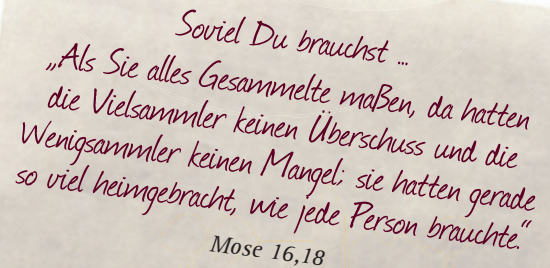 Soviel Du brauchst ...
„Als Sie alles Gesammelte maßen, da hatten
die Vielsammler keinen Überschuss und die
Wenigsammler keinen Mangel; sie hatten gerade
so viel heimgebracht, wie jede Person brauchte.“
Mose 16,18